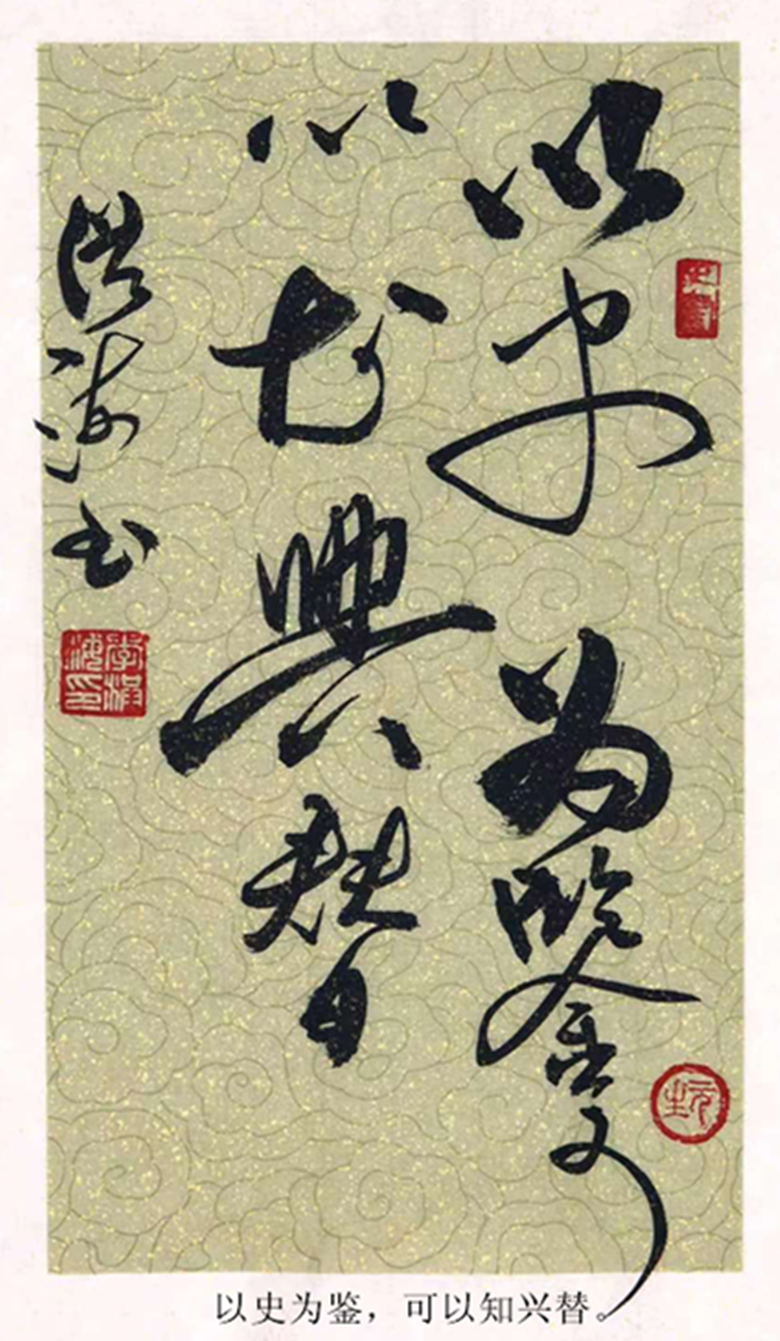 以史为鑒可
以知興替
洪海书
以史为鉴，可以知兴替。